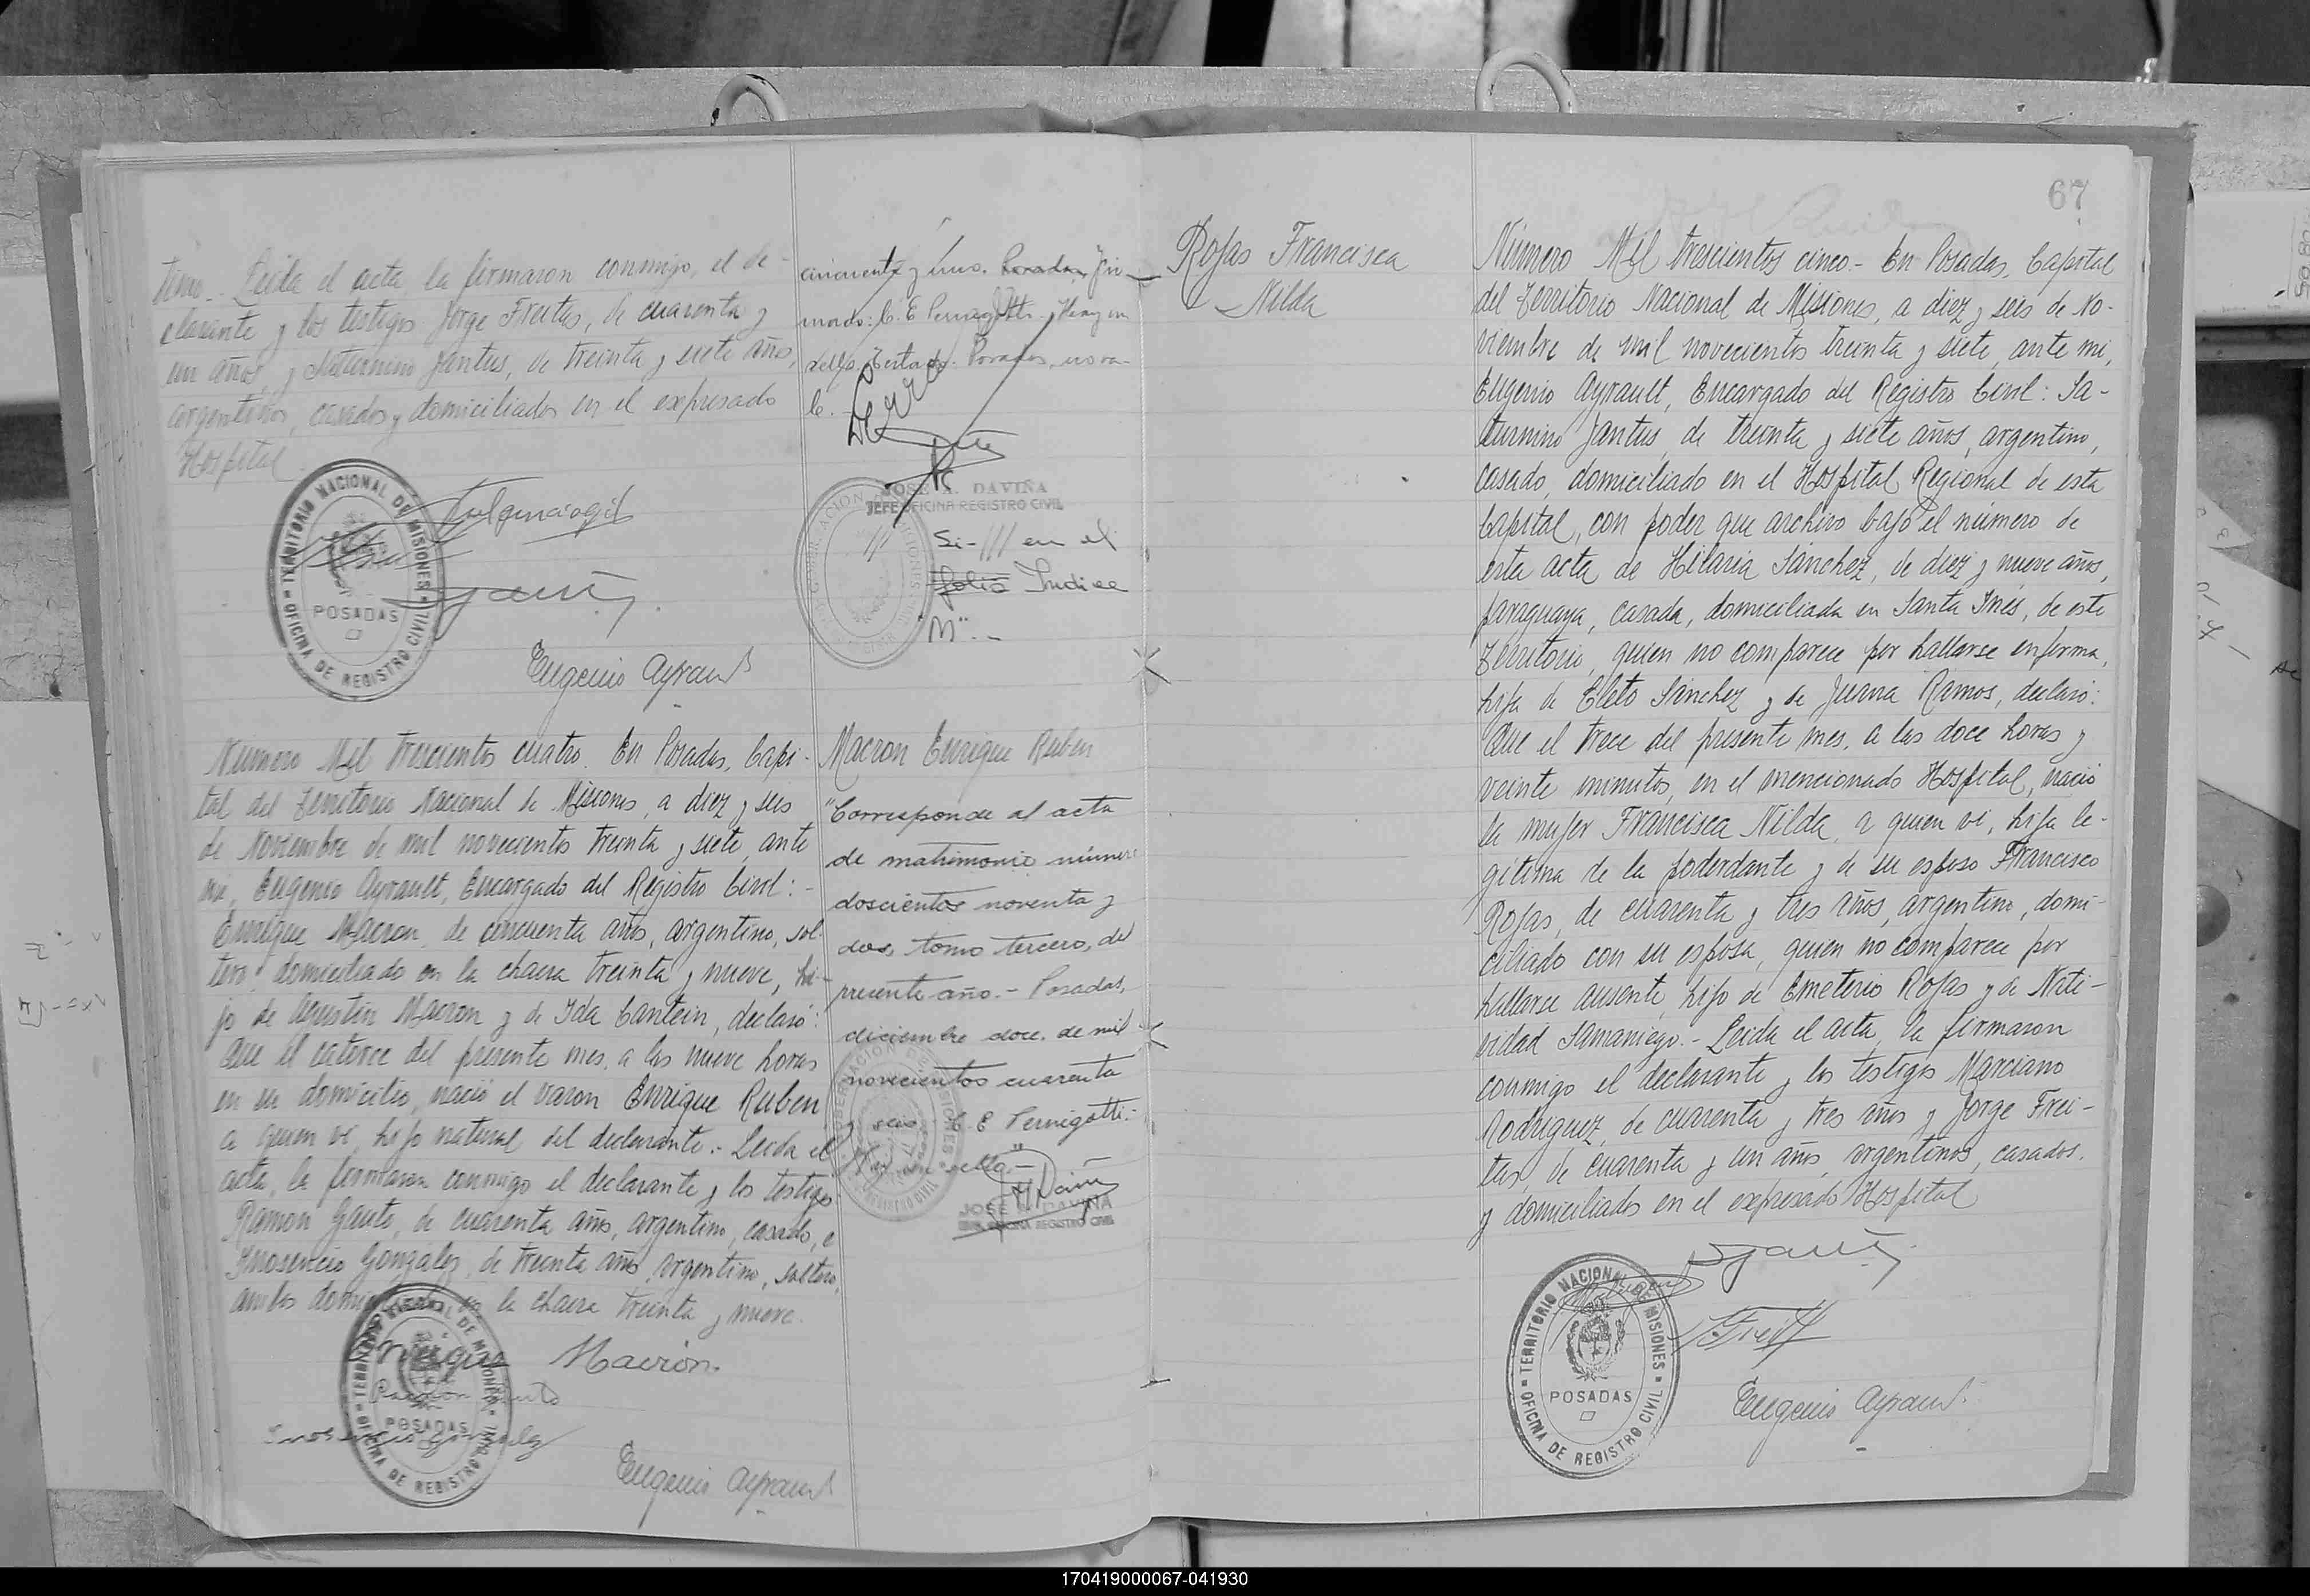 timo.- Leida el acta, la firmaron conmigo, el de-
clarante y los testigos Jorge Freitas, de cuarenta y
un años, y Saturnino Jantus, de treinta y siete años,
argentinos, casados y domiciliados en el expresado
Hospital
TERRITORIO NACIONAL DE MISIONES
OFICINA DE REGISTRO CIVIL
POSADAS
Eugenio Ayrault
cincuenta y uno. Posadas, Fir-
mado: C. E. Pernigotti. Hay un
sello. Testado: Posadas, no va-
le.-
JOSE A. DAVIÑA
JEFE OFICINA REGISTRO CIVIL
Si-/// en el
folio Indice
"M".-
Número Mil trescientos cuatro. En Posadas, Capi-
tal del Territorio Nacional de Misiones, a diez y seis
de Noviembre de mil novecientos treinta y siete, ante
mi, Eugenio Ayrault, Encargado del Registro Civil:-
Enrique Macron, de cincuenta años, argentino, sol-
tero, domiciliado en la chacra treinta y nueve, hi-
jo de Agustin Macron y de Ida Cantein, declaró:
Que el catorce del presente mes, a las nueve horas
en su domicilio, nació el varon Enrique Ruben
a quien vi, hijo natural del declarante.- Leida el
acta, la firmaron conmigo el declarante y los testigos
Ramon Gauto, de cuarenta años, argentino, casado, e
Inosencio Gonzalez, de treinta años, argentino, soltero,
ambos domiciliados en la chacra treinta y nueve.
Enrique Macron
Ramon Gauto
Inosencio Gonzalez
TERRITORIO NACIONAL DE MISIONES
OFICINA DE REGISTRO CIVIL
POSADAS
Eugenio Ayrault
Macron Enrique Ruben
"Corresponde al acta
de matrimonio número
doscientos noventa y
dos, tomo tercero, del
presente año.- Posadas,
diciembre doce, de mil
novecientos cuarenta
y seis. C. E. Pernigotti.-
Hay un sello.-"
JOSE A. DAVIÑA
JEFE OFICINA REGISTRO CIVIL
Rojas Francisca
Nilda
67
Número Mil trescientos cinco.- En Posadas, Capital
del Territorio Nacional de Misiones, a diez y seis de No-
viembre de mil novecientos treinta y siete, ante mi,
Eugenio Ayrault, Encargado del Registro Civil: Sa-
turnino Jantus, de treinta y siete años, argentino,
casado, domiciliado en el Hospital Regional de esta
Capital, con poder que archivo bajo el número de
esta acta de Hilaria Sánchez, de diez y nueve años,
paraguaya, casada, domiciliada en Santa Inés, de este
Territorio, quien no comparece por hallarse enferma,
hija de Cleto Sánchez y de Juana Ramos, declaró:
Que el trece del presente mes, a las doce horas y
veinte minutos, en el mencionado Hospital, nació
la mujer Francisca Nilda, a quien vi, hija le-
gitima de la poderdante y de su esposo Francisco
Rojas, de cuarenta y tres años, argentino, domi-
ciliado con su esposa, quien no comparece por
hallarse ausente, hijo de Emeterio Rojas y de Nati-
vidad Samaniego.- Leida el acta, la firmaron
conmigo el declarante y los testigos Marciano
Rodriguez, de cuarenta y tres años y Jorge Frei-
tas, de cuarenta y un años, argentinos, casados,
y domiciliados en el expresado Hospital
TERRITORIO NACIONAL DE MISIONES
OFICINA DE REGISTRO CIVIL
POSADAS
Eugenio Ayrault
170419000067-041930